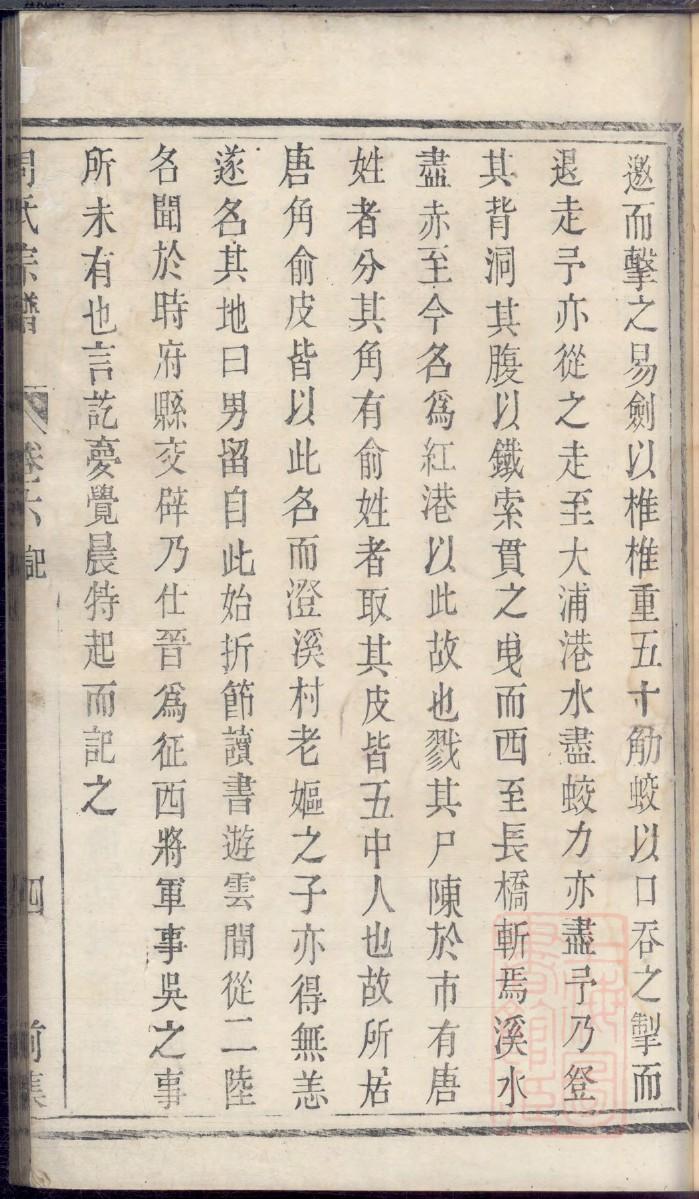 邀而擊之易劍以椎椎重五十觔蛟以口吞之掣而
退走予亦從之走至大浦港水盡蛟力亦盡予乃登
其背洞其腹以鐵索貫之曳而西至長橋斬焉溪水
盡赤至今名爲紅港以此故也戮其尸陳於市有唐
姓者分其角有俞姓者取其皮皆五中人也故所居
唐角俞皮皆以此名而澄溪村老嫗之子亦得無恙
遂名其地曰男留自此始折節讀書遊雲間從二陸
名聞於時府縣交辟乃仕晉爲征西將軍事吳之事
所未有也言訖夢覺晨特起而記之
周氏宗譜 卷之六 記 四 前集